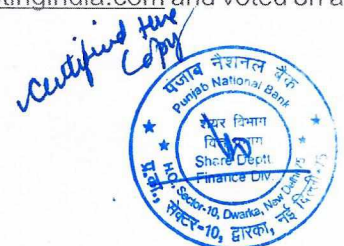 tingindia.com and voted on a
Certified true
Copy
पंजाब नैशनल बैंक
Punjab National Bank
शेयर विभाग
Share Deptt.
Finance Div.
H.O. Sector-10, Dwarka, New Delhi-75
प्र.का., सेक्टर-10, द्वारका, नई दिल्ली-75